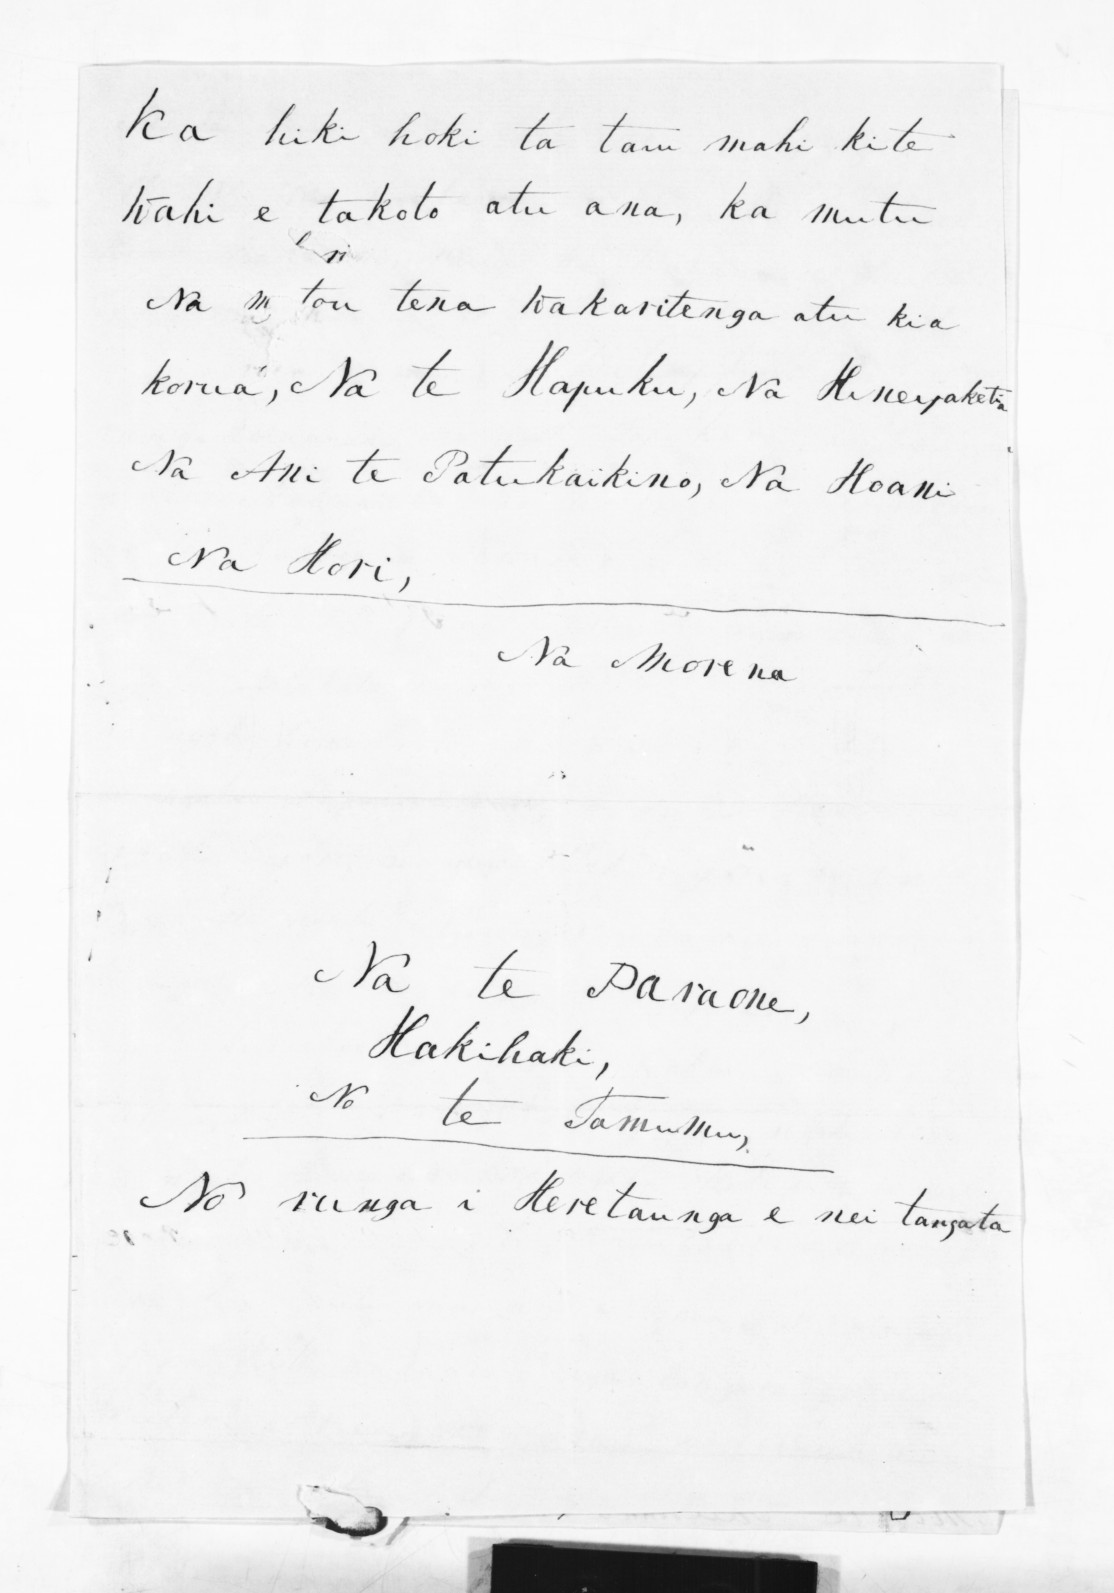 Ka hiki hoki ta tau mahi kite
Wahi e takoto atu ana, ka mutu
ri
Na m tou tena Wakaritenga atu kia
korua, Na te Hapuku, Na Hinepaketia
Na Ani te Patukaikino, Na Hoani
Na Hori,
Na Morena
Na te Paraone,
Hakihaki,
No te Tamumu,
No runga i Heretaunga e nei tangata